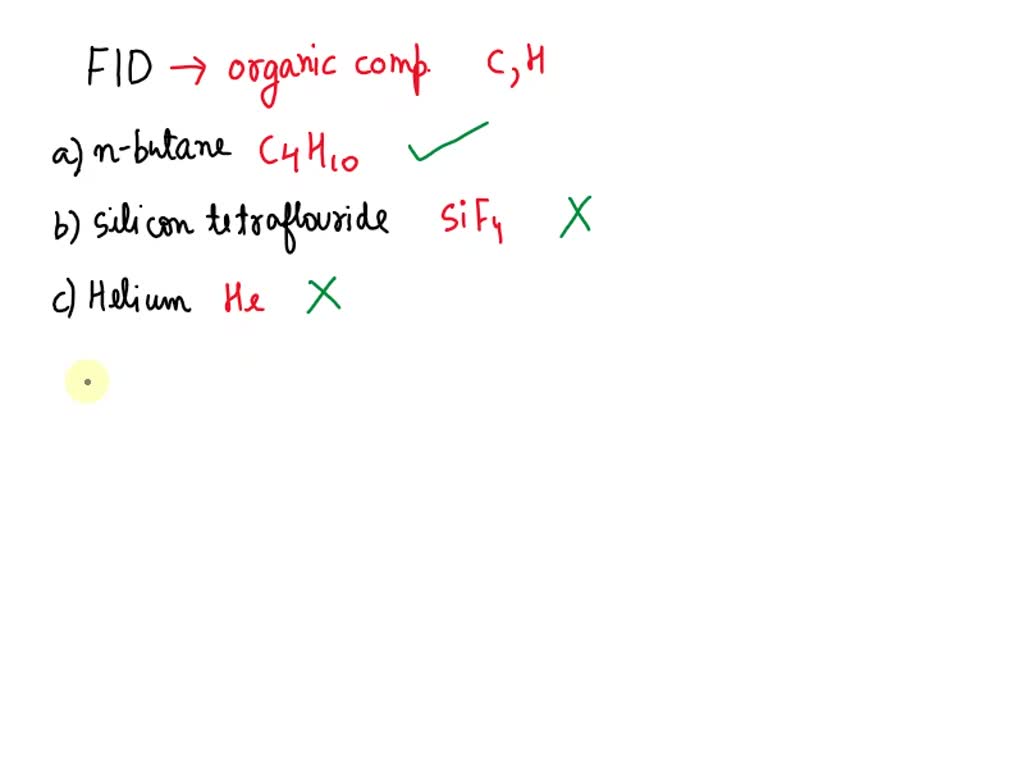 FID → organic comp. C, H
a) n-butane C4H10 ✓
b) silicon tetraflouride SiF4 X
c) Helium He X